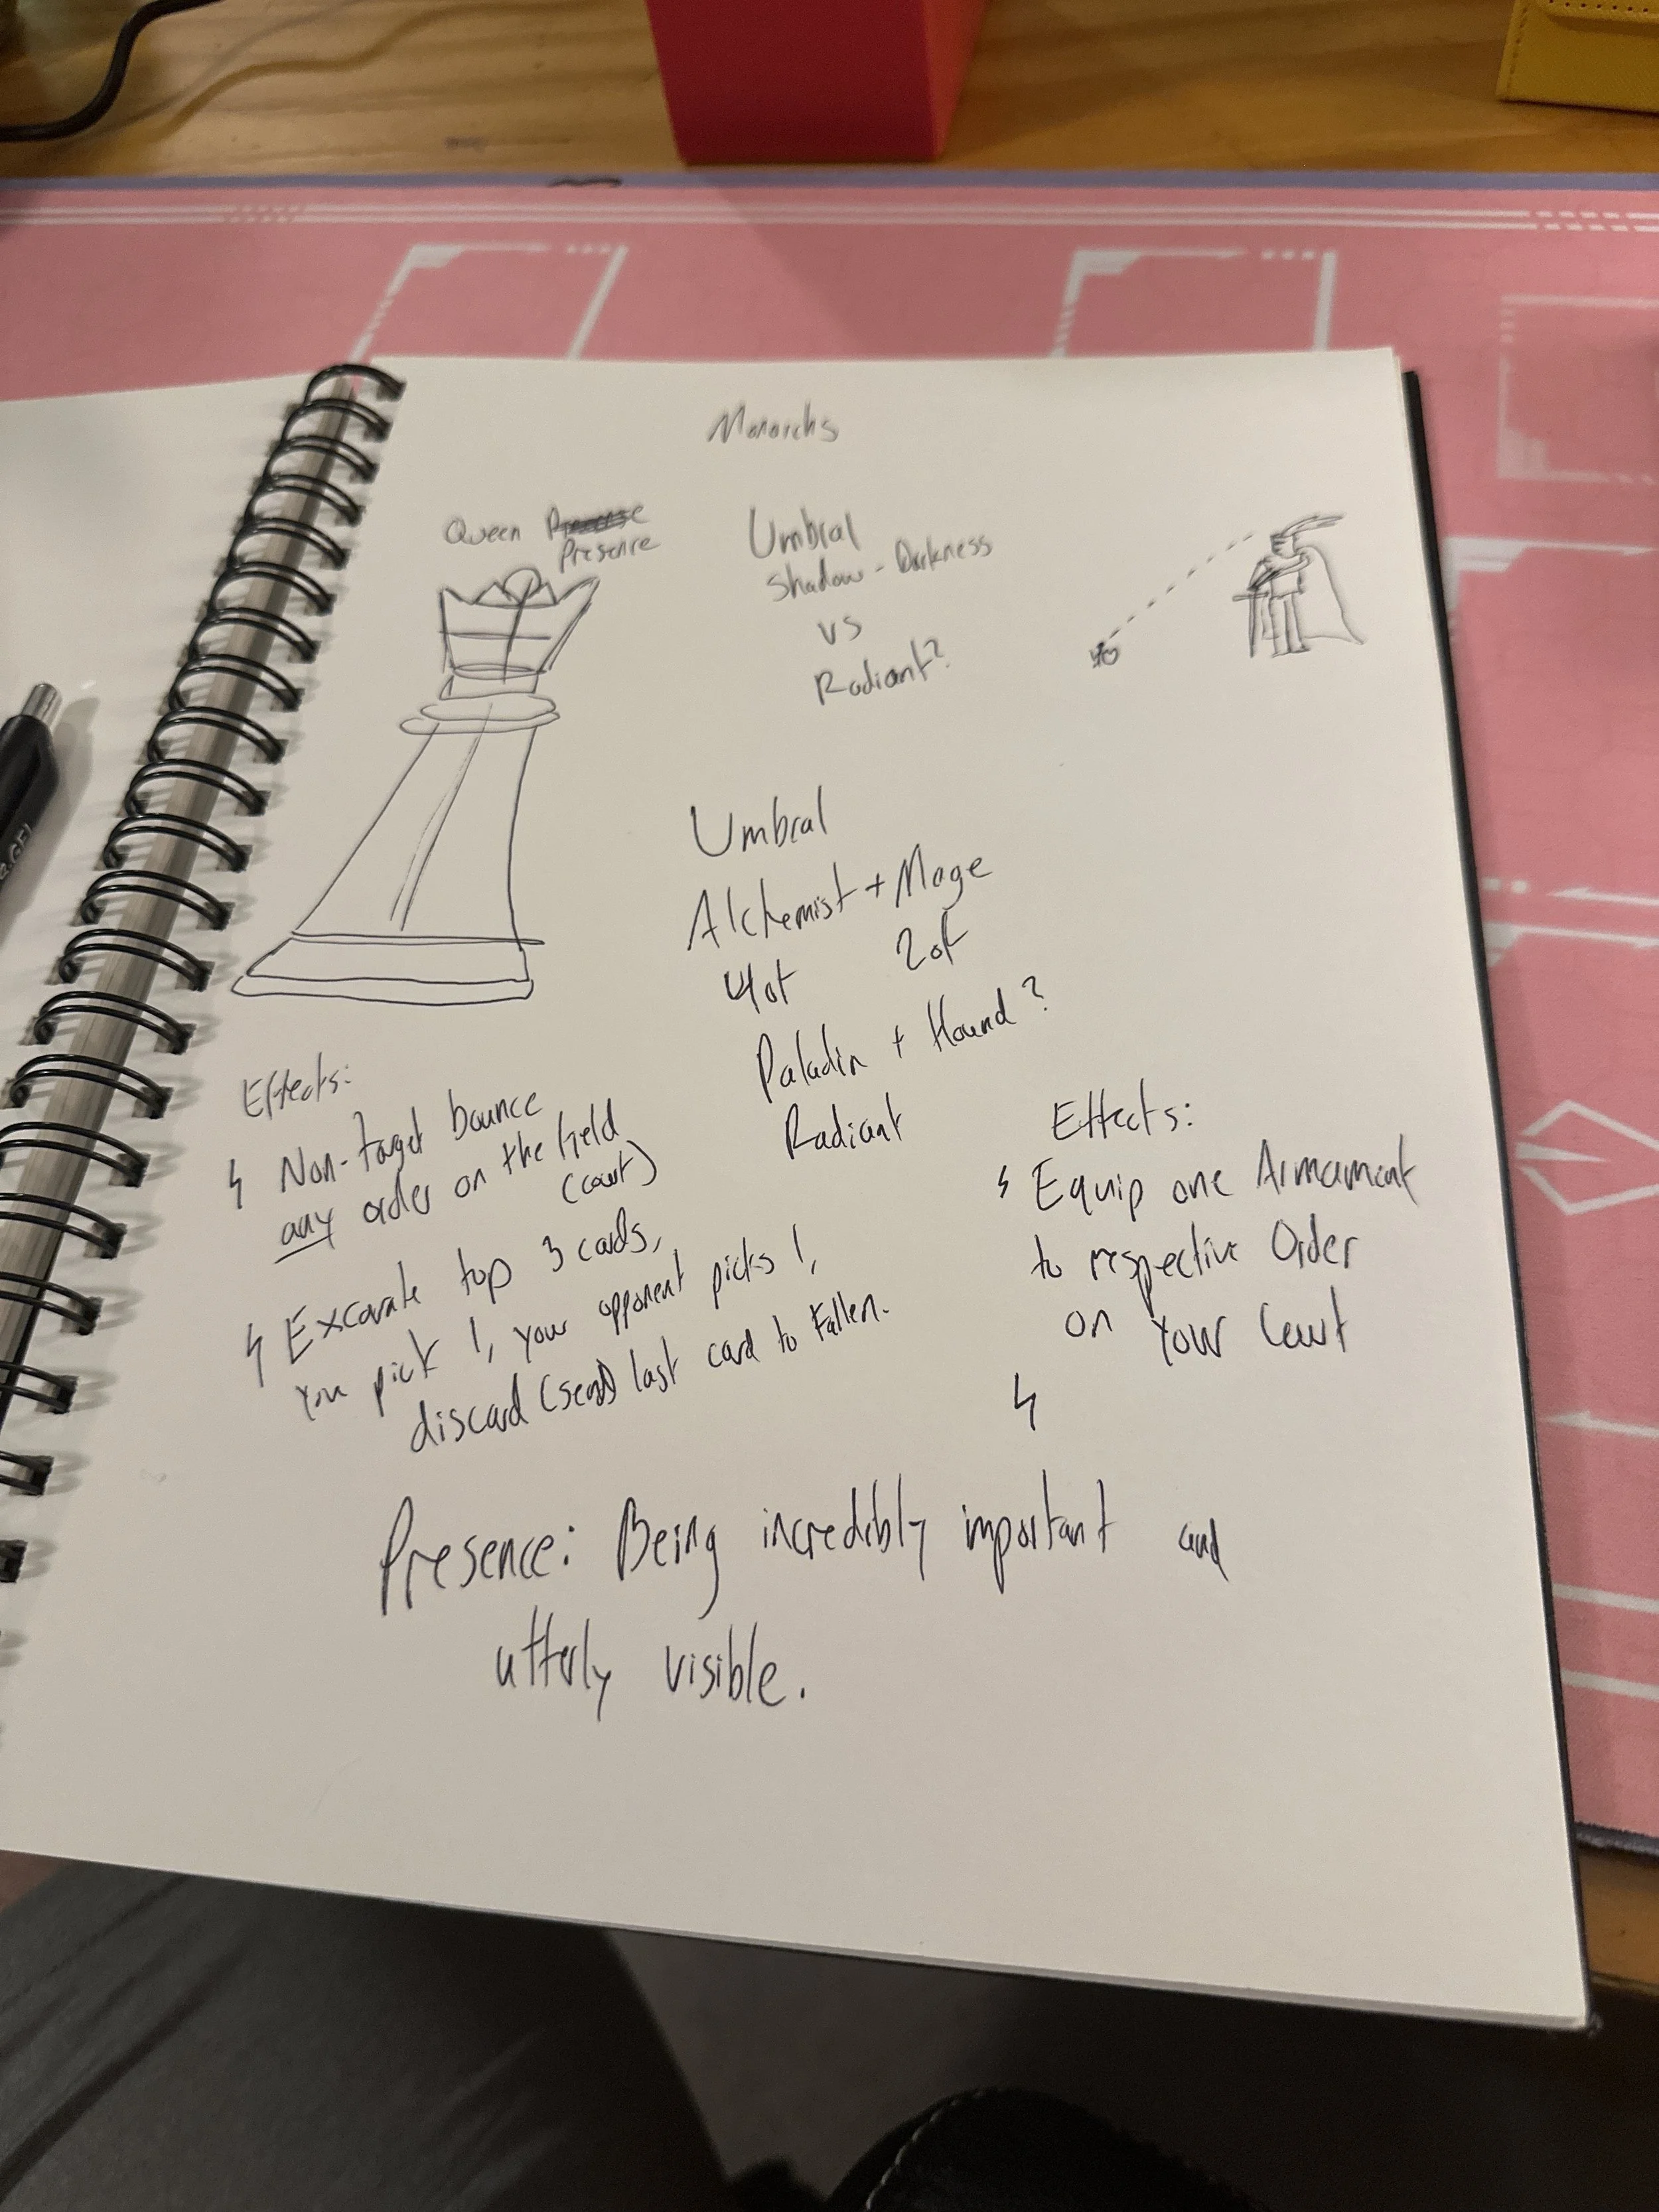 Monarchs
Queen
Presence
Umbral
Shadow - Darkness
vs
Radiant?
Umbral
Alchemist + Mage
4 of 2 of
Paladin + Hound?
Radiant
Effects:
Non-target bounce
any order on the field
(court)
Excavate top 3 cards,
You pick 1, your opponent picks 1,
discard (send) last card to Fallen.
Effects:
Equip one Armament
to respective Order
on Your Court
Presence: Being incredibly important and
utterly visible.